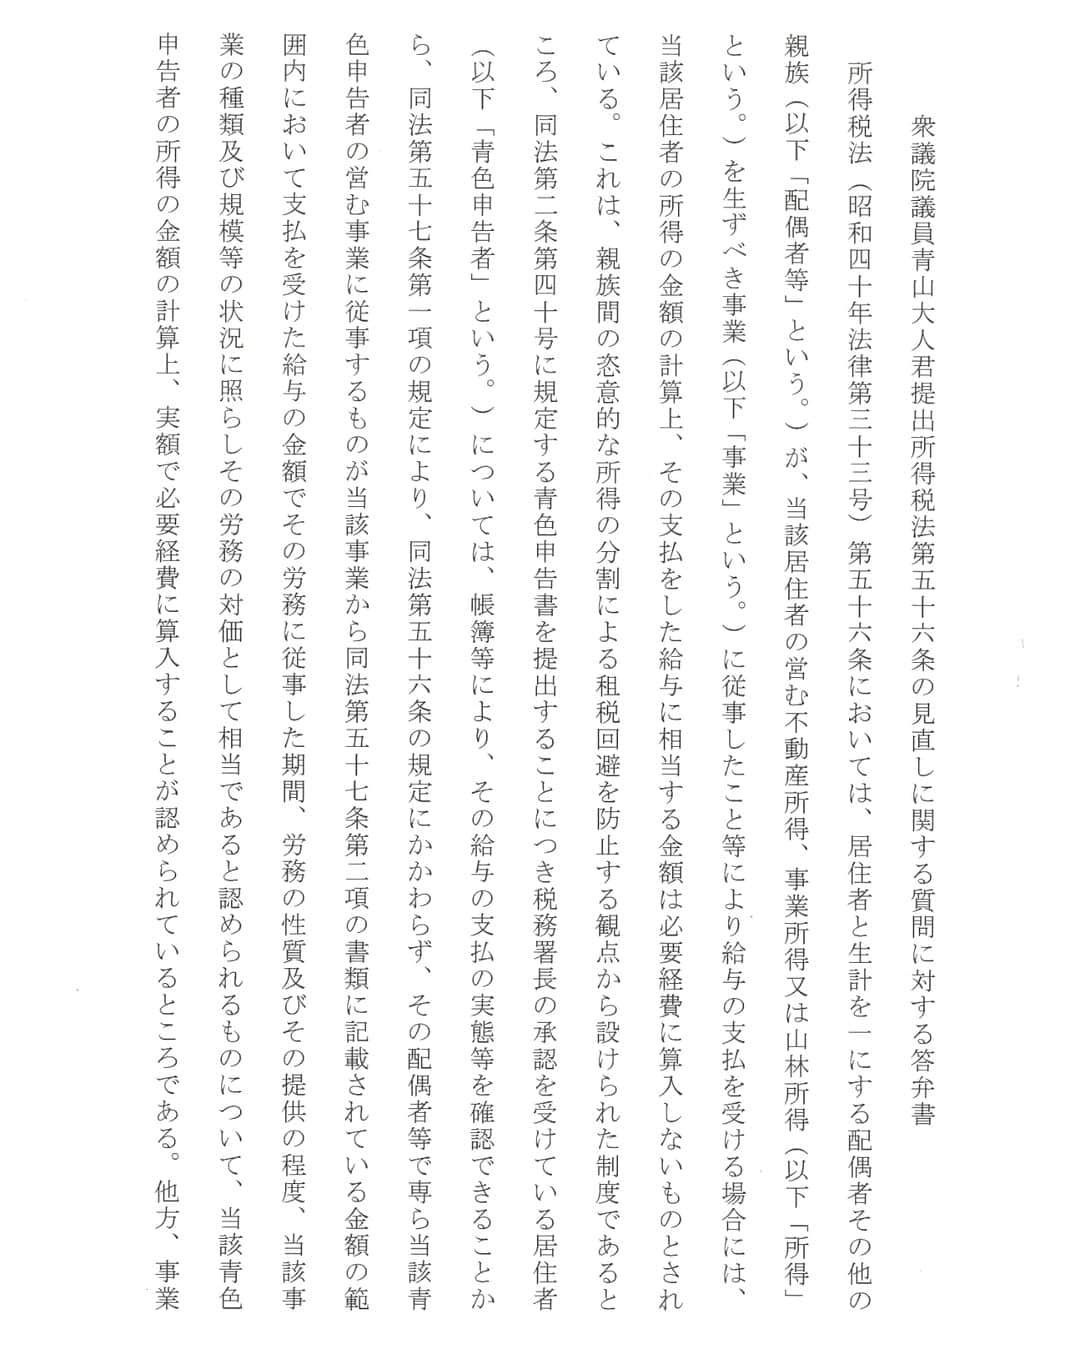 衆議院議員青山大人君提出所得税法第五十六条の見直しに関する質問に対する答弁書
所得税法（昭和四十年法律第三十三号）第五十六条においては、居住者と生計を一にする配偶者その他の
親族（以下「配偶者等」という。）が、当該居住者の営む不動産所得、事業所得又は山林所得（以下「所得」
という。）を生ずべき事業（以下「事業」という。）に従事したこと等により給与の支払を受ける場合には、
当該居住者の所得の金額の計算上、その支払をした給与に相当する金額は必要経費に算入しないものとされ
ている。これは、親族間の恣意的な所得の分割による租税回避を防止する観点から設けられた制度であると
ころ、同法第二条第四十号に規定する青色申告書を提出することにつき税務署長の承認を受けている居住者
（以下「青色申告者」という。）については、帳簿等により、その給与の支払の実態等を確認できることか
ら、同法第五十七条第一項の規定により、同法第五十六条の規定にかかわらず、その配偶者等で専ら当該青
色申告者の営む事業に従事するものが当該事業から同法第五十七条第二項の書類に記載されている金額の範
囲内において支払を受けた給与の金額でその労務に従事した期間、労務の性質及びその提供の程度、当該事
業の種類及び規模等の状況に照らしその労務の対価として相当であると認められるものについて、当該青色
申告者の所得の金額の計算上、実額で必要経費に算入することが認められているところである。他方、事業